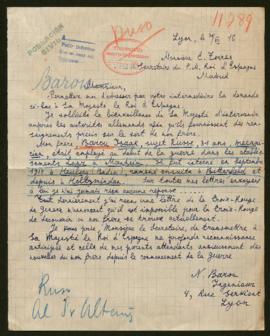 11289
Ruso
POBLACION CIVIL
Baron
Lyon, le
Monsieur E. Torres
Secrétaire de S.M. Roi d'Espagne
Madrid
Monsieur,
Permettez moi d'adresser par votre intermédiaire la demande
ci-bas à Sa Majesté le Roi d'Espagne.
Je sollicite la bienveillance de Sa Majesté d'intervenir
auprès des autorités allemandes pour qu'ils fournissent des ren-
seignements précis sur le sort de mon frère.
Mon frère, Baron Isaac, sujet Russe, 30 ans,
était employé au début de la guerre dans les
Lanz à Manheim. Il fut interné en septembre
1914 à Heuberg (Baden), ramené ensuite à Bitterfeld et
depuis à Holtzminden. Sur toutes mes lettres envoyées
à lui je n'ai jamais reçu aucune réponse.
Tout dernièrement j'ai reçu une lettre de la Croix-Rouge
de Genève m'annonçant qu'il est impossible pour la Croix-Rouge
de découvrir où mon frère se trouve actuellement.
Je vous prie, Monsieur le Secrétaire, de transmettre à
Sa Majesté le Roi d'Espagne ma profonde reconnaissance
anticipée et celle de nos parents attendants anxieusement des
nouvelles de mon frère depuis le commencement de la guerre.
N. Baron
Ingénieur
4, Rue Servient
Lyon
Ruso